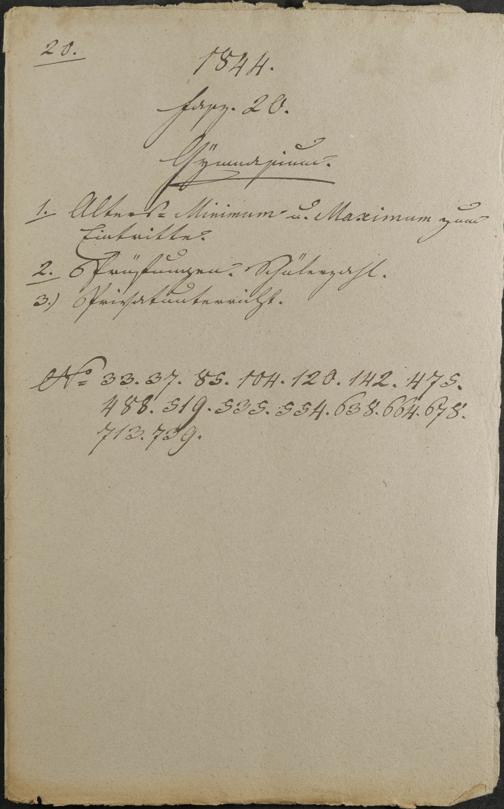 20.
1844.
Fasz. 20.
Gymnasium.
1. Alters= Minimum u. Maximum zum
Eintritte.
2. Prüfungen. Schülerzahl.
3.) Privatunterricht.
No 33. 37. 85. 104. 120. 142. 475.
488. 519. 535. 554. 638. 664. 678.
713. 739.